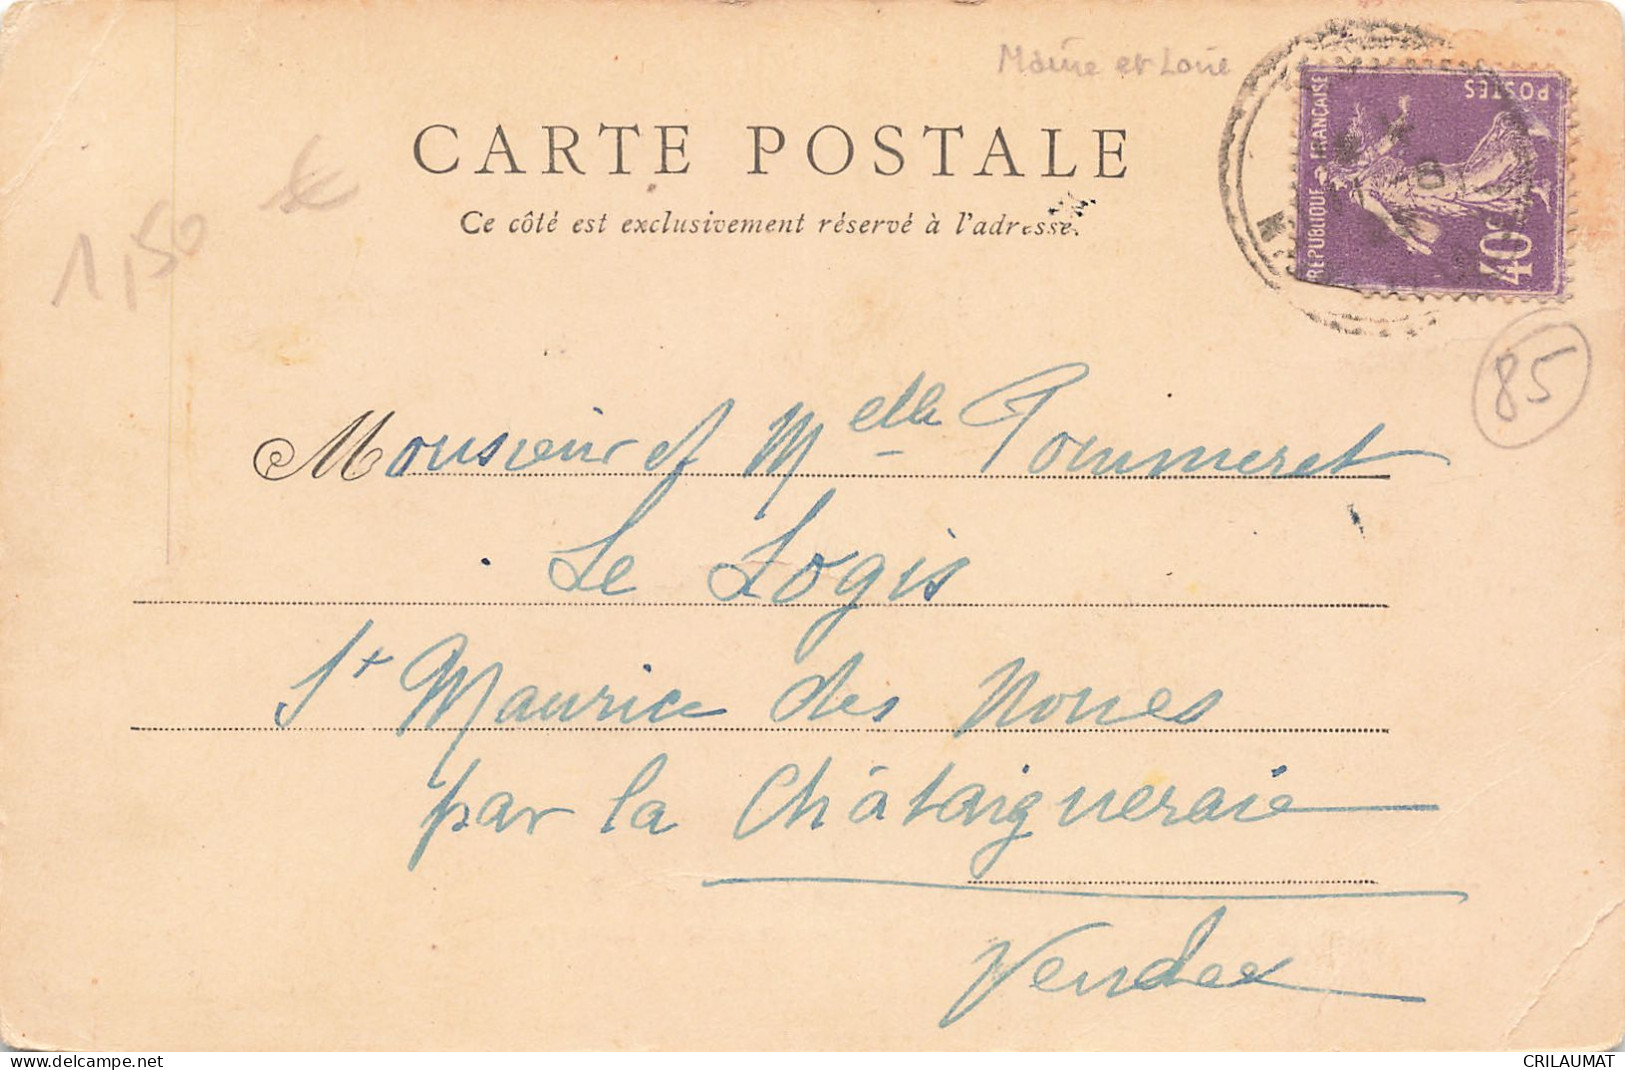 Maine et Loire
CARTE POSTALE
Ce côté est exclusivement réservé à l'adresse.
1,50 €
REPUBLIQUE FRANÇAISE
POSTES
40c
85
Monsieur et Melle Pommeret
Le Logis
St Maurice des Noues
par la Châtaigneraie
Vendee
delcampe.net
CRILAUMAT